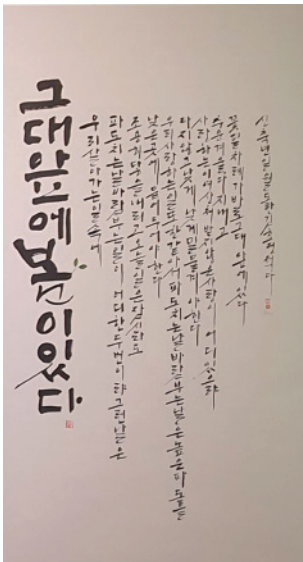 그대 앞에 봄이 있다
우리 살아가는 일 속에
파도치는 날 바람 부는 날이 어디 한두 번이랴 그런 날은
조용히 닻을 내리고 오늘 일을 잠시라도
낮은 곳에 묻어 두어야 한다
우리 사랑하는 일 또한 같아서 파도치는 날 바람 부는 날은 높은 파도를
타지 않고 낮게 낮게 밀물져야 한다
사랑하는 이여 상처받지 않은 사랑이 어디 있으랴
추운 겨울을 다 지내고
꽃필 차례가 바로 그대 앞에 있다
신축년 일월